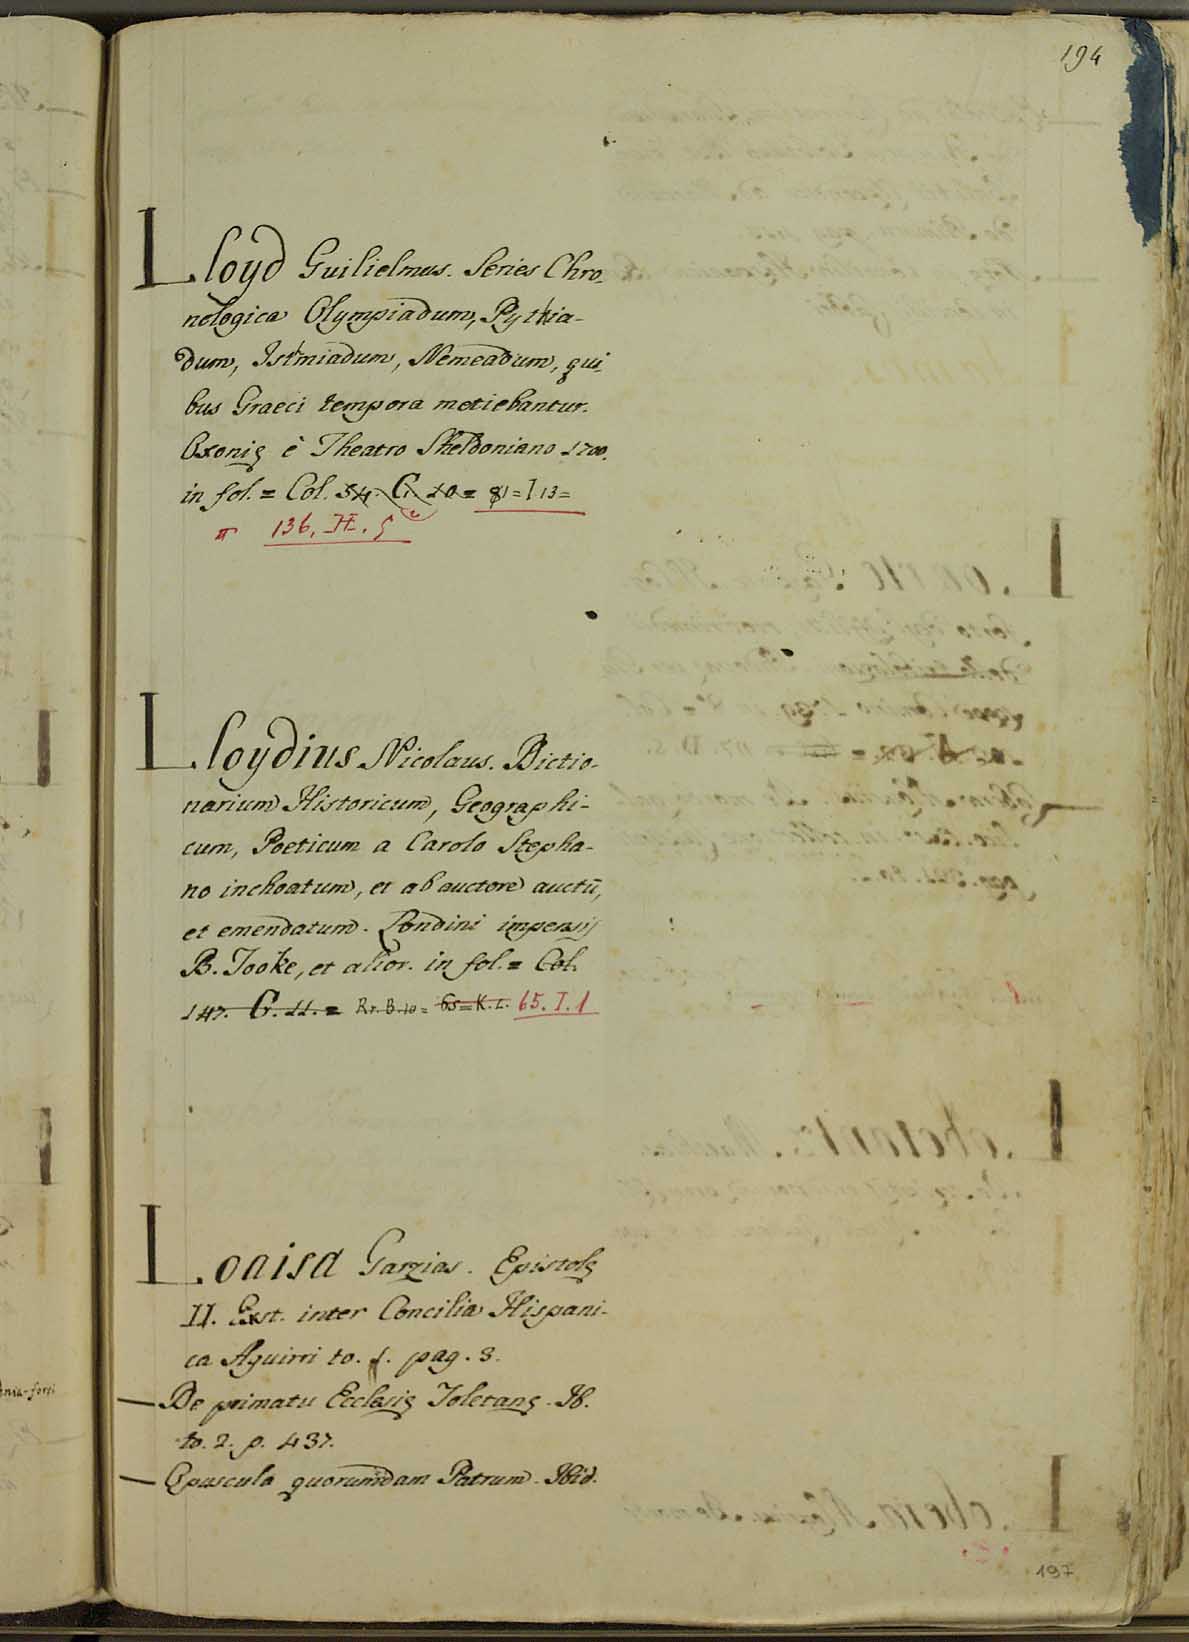 194
Lloyd Guilielmus. Series Chro-
nologica Olympiadum, Pythia-
dum, Isthmiadum, Nemeadum, qui-
bus Graeci tempora metiebantur.
Oxonię è Theatro Sheldoniano 1700.
in fol. = Col. 54. G. 10 = 81 = I 13 =
136. H. 5
Lloydius Nicolaus. Dictio-
narium Historicum, Geographi-
cum, Poeticum a Carolo Stepha-
no inchoatum, et ab auctore auctū,
et emendatum. Londini impensis
B. Tooke, et alior. in fol. = Col.
147. G. 11. = Rr. B. 10 = 65 = K. 1. 65. I. 1
Loaisa Garzias. Epistolę
II. Exst. inter Concilia Hispani-
ca Aguirri to. 1. pag. 3.
— De primatu Ecclesię Toletanę. Ib.
to. 2. p. 437.
— Opuscula quorumdam Patrum. Ibid.
197